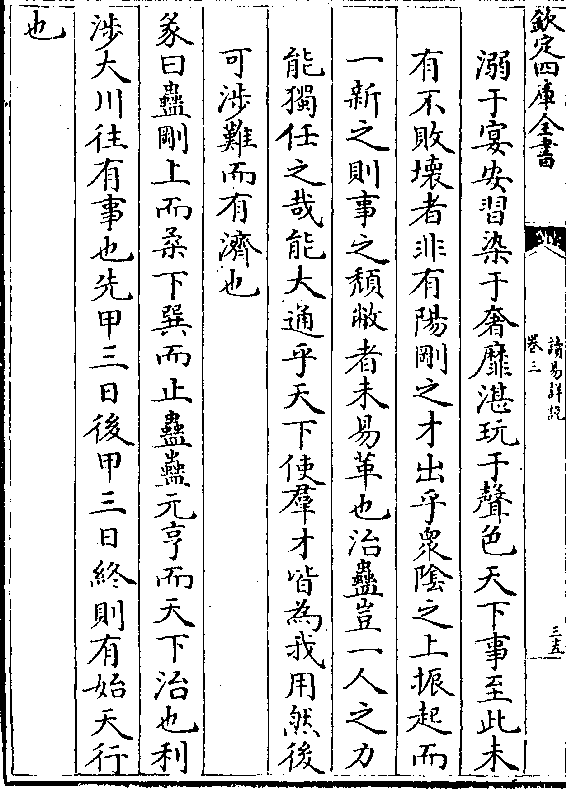 欽定四庫全書
讀易詳說
卷三
三五
溺于宴安習染于奢靡湛玩于聲色天下事至此未
有不敗壞者非有陽剛之才出乎衆陰之上振起而
一新之則事之頹敝者未易革也治蠱豈一人之力
能獨任之哉能大通乎天下使羣才皆為我用然後
可涉難而有濟也
彖曰蠱剛上而柔下巽而止蠱蠱元亨而天下治也利
涉大川往有事也先甲三日後甲三日終則有始天行
也